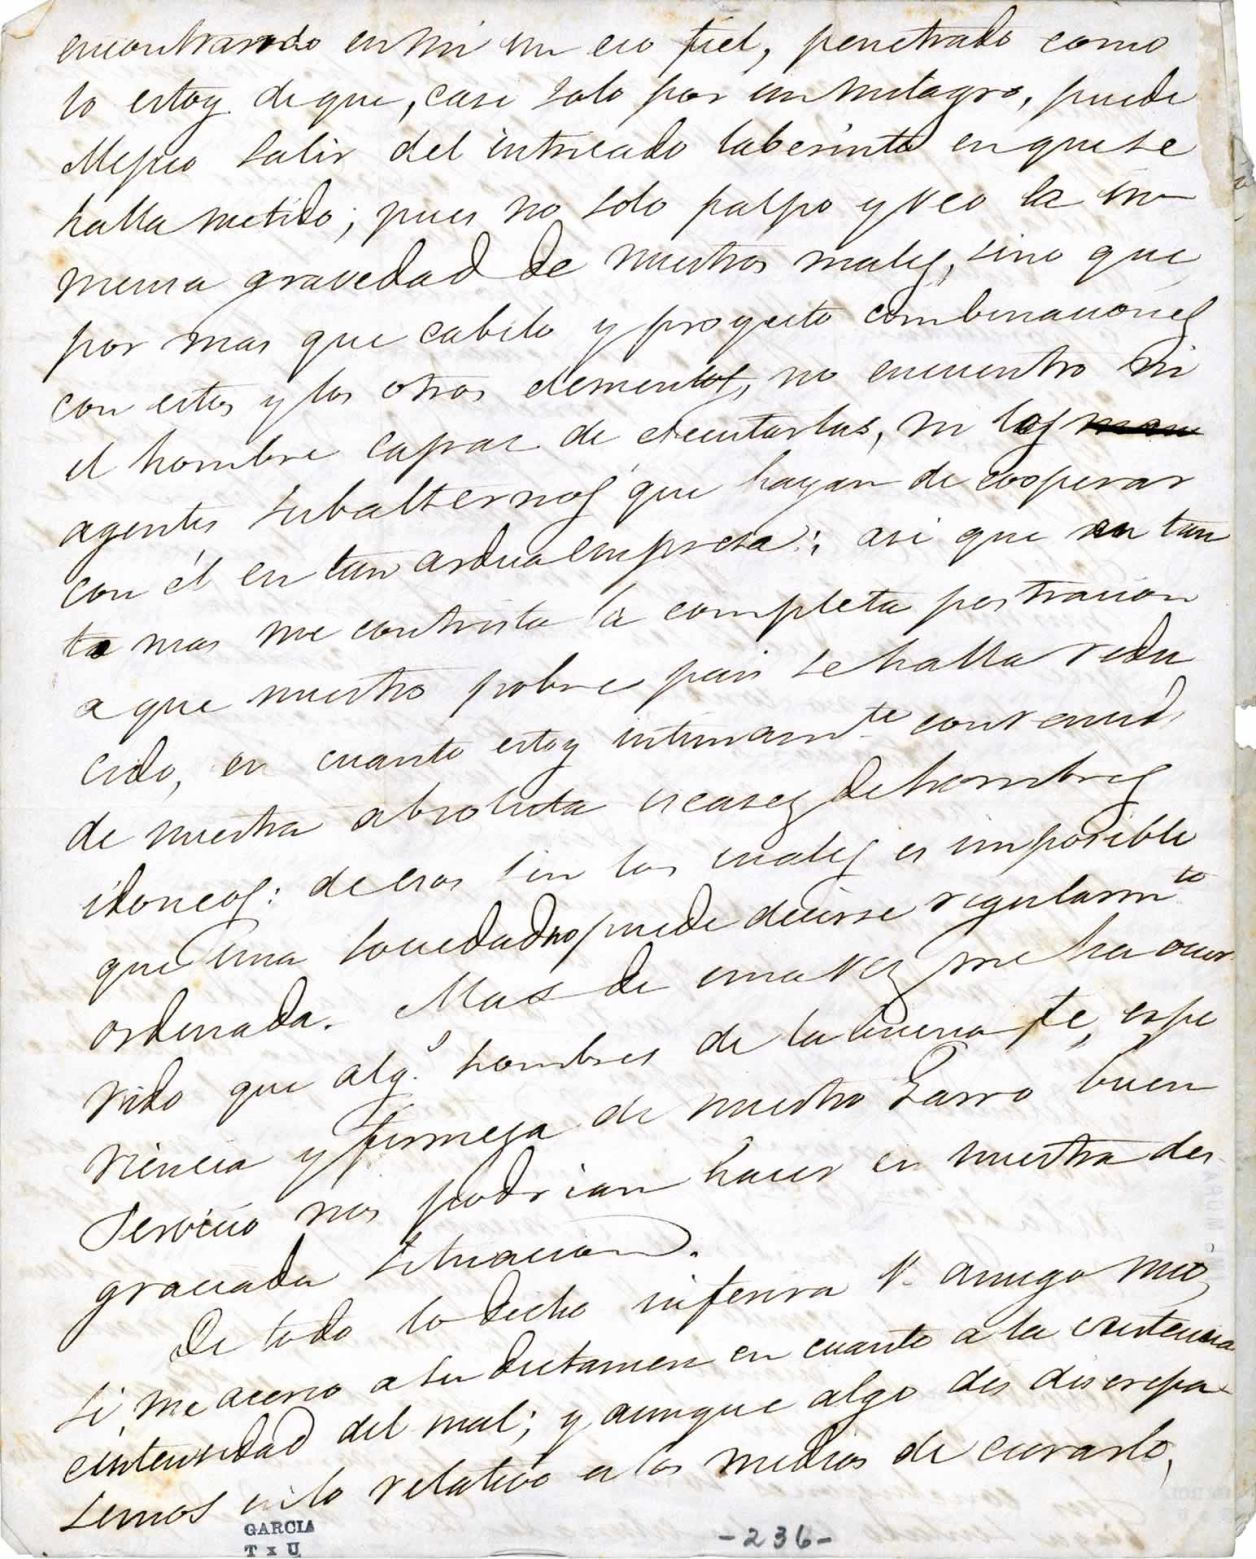 encontrando en mi un eco fiel, penetrado como
lo estoy de que, casi solo por un milagro, puede
Mejico salir del intricado laberinto en que se
halla metido; pues no solo palpo y veo la in-
mensa gravedad de nuestros males, sino que
por mas que cabilo y proyecto combinaciones
con estos y los otros elementos, no encuentro ni
el hombre capaz de ejecutarlas, ni los
agentes subalternos que hayan de cooperar
con él en tan ardua empresa: asi que en tan
to mas me contrista la completa postracion
a que nuestro pobre pais se halla redu
cido, en cuanto estoy intimamte convencid
de nuestra absoluta escasez de hombres
idoneos: de esos sin los cuales es imposible
que una sociedad no puede decirse regularmte
ordenada. Mas de una vez me ha ocur
rido que algs hombres de la buena fe, espe
riencia y firmeza de nuestro Garro buen
servicio nos podrian hacer en nuestra des-
graciada situacion.
De todo lo dicho inferira V. amigo mio,
si me acerco a su dictamen en cuanto a la existencia
e intensidad del mal; y aunque algo dis discrepa-
semos en lo relativo a los medios de curarlo,
GARCIA
T x U
-236-